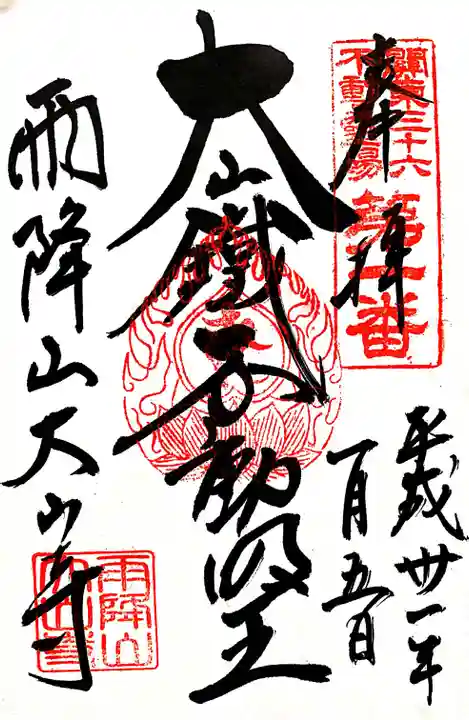 奉拝
關東三十六
不動霊場
第一番
平成卅一年
一月五日
大山鐵不動明王
雨降山大山寺
雨降山
大山寺